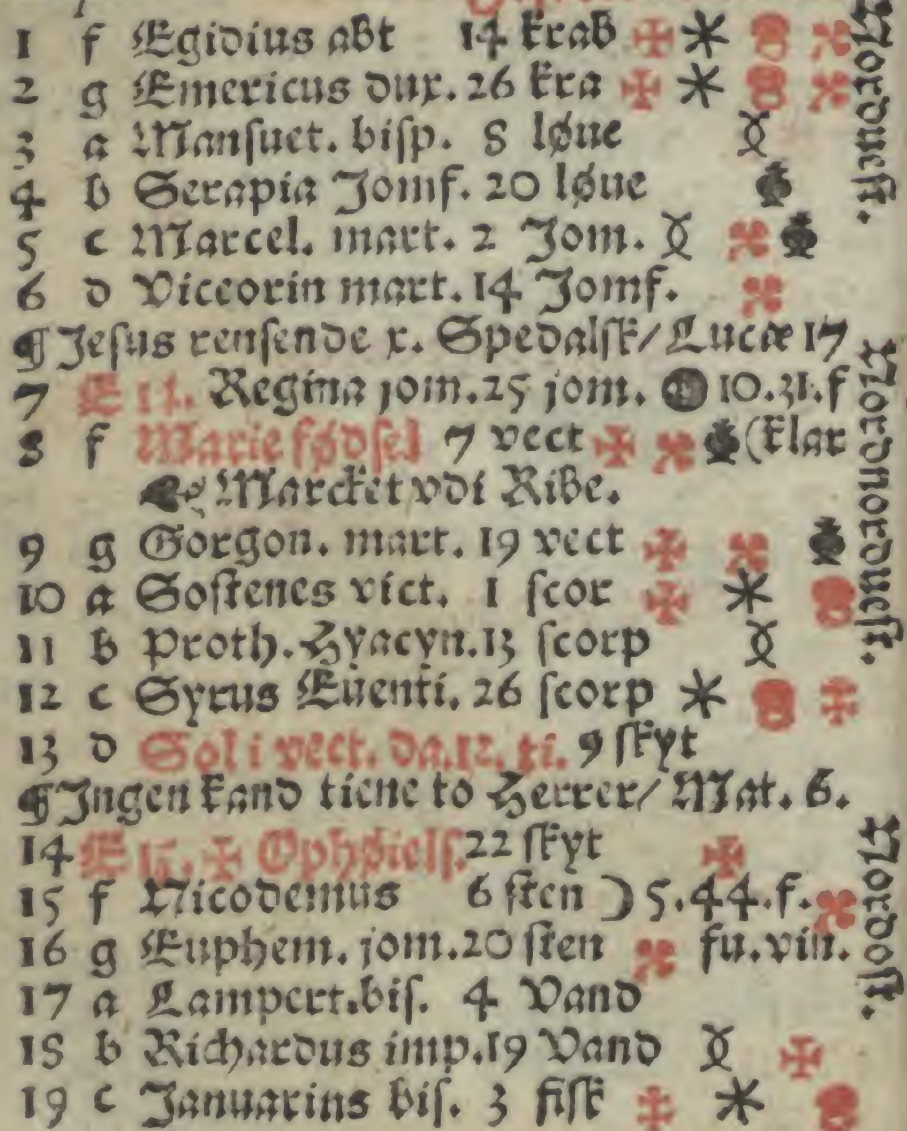 1 f Egidius abt 14 krab
2 g Emericus dux. 26 kra
3 a Mansuet. bisp. 8 løue
4 b Serapia Jomf. 20 løue
5 c Marcel. mart. 2 Jom.
6 d Viceorin mart. 14 Jomf.
¶ Jesus rensende x. Spedalsk/ Lucæ 17
7 E 14. Regina jom. 25 jom. 10.31.f
8 f Marie fødsel 7 vect (klar
Marcket vdi Ribe.
9 g Gorgon. mart. 19 vect
10 a Sostenes vict. 1 scor
11 b Proth. Hyacyn. 13 scorp
12 c Syrus Euenti. 26 scorp
13 d Sol i vect. da. 12. ti. 9 skyt
¶ Ingen kand tiene to Herrer/ Mat. 6.
14 E 15. ✠ Ophøiels. 22 skyt
15 f Nicodemus 6 sten ☽ 5.44.f.
16 g Euphem. jom. 20 sten fu. vin.
17 a Lampert. bis. 4 Vand
18 b Richardus imp. 19 Vand
19 c Januarius bis. 3 fisk
Norduest.
Nordnorduest.
Nordost.